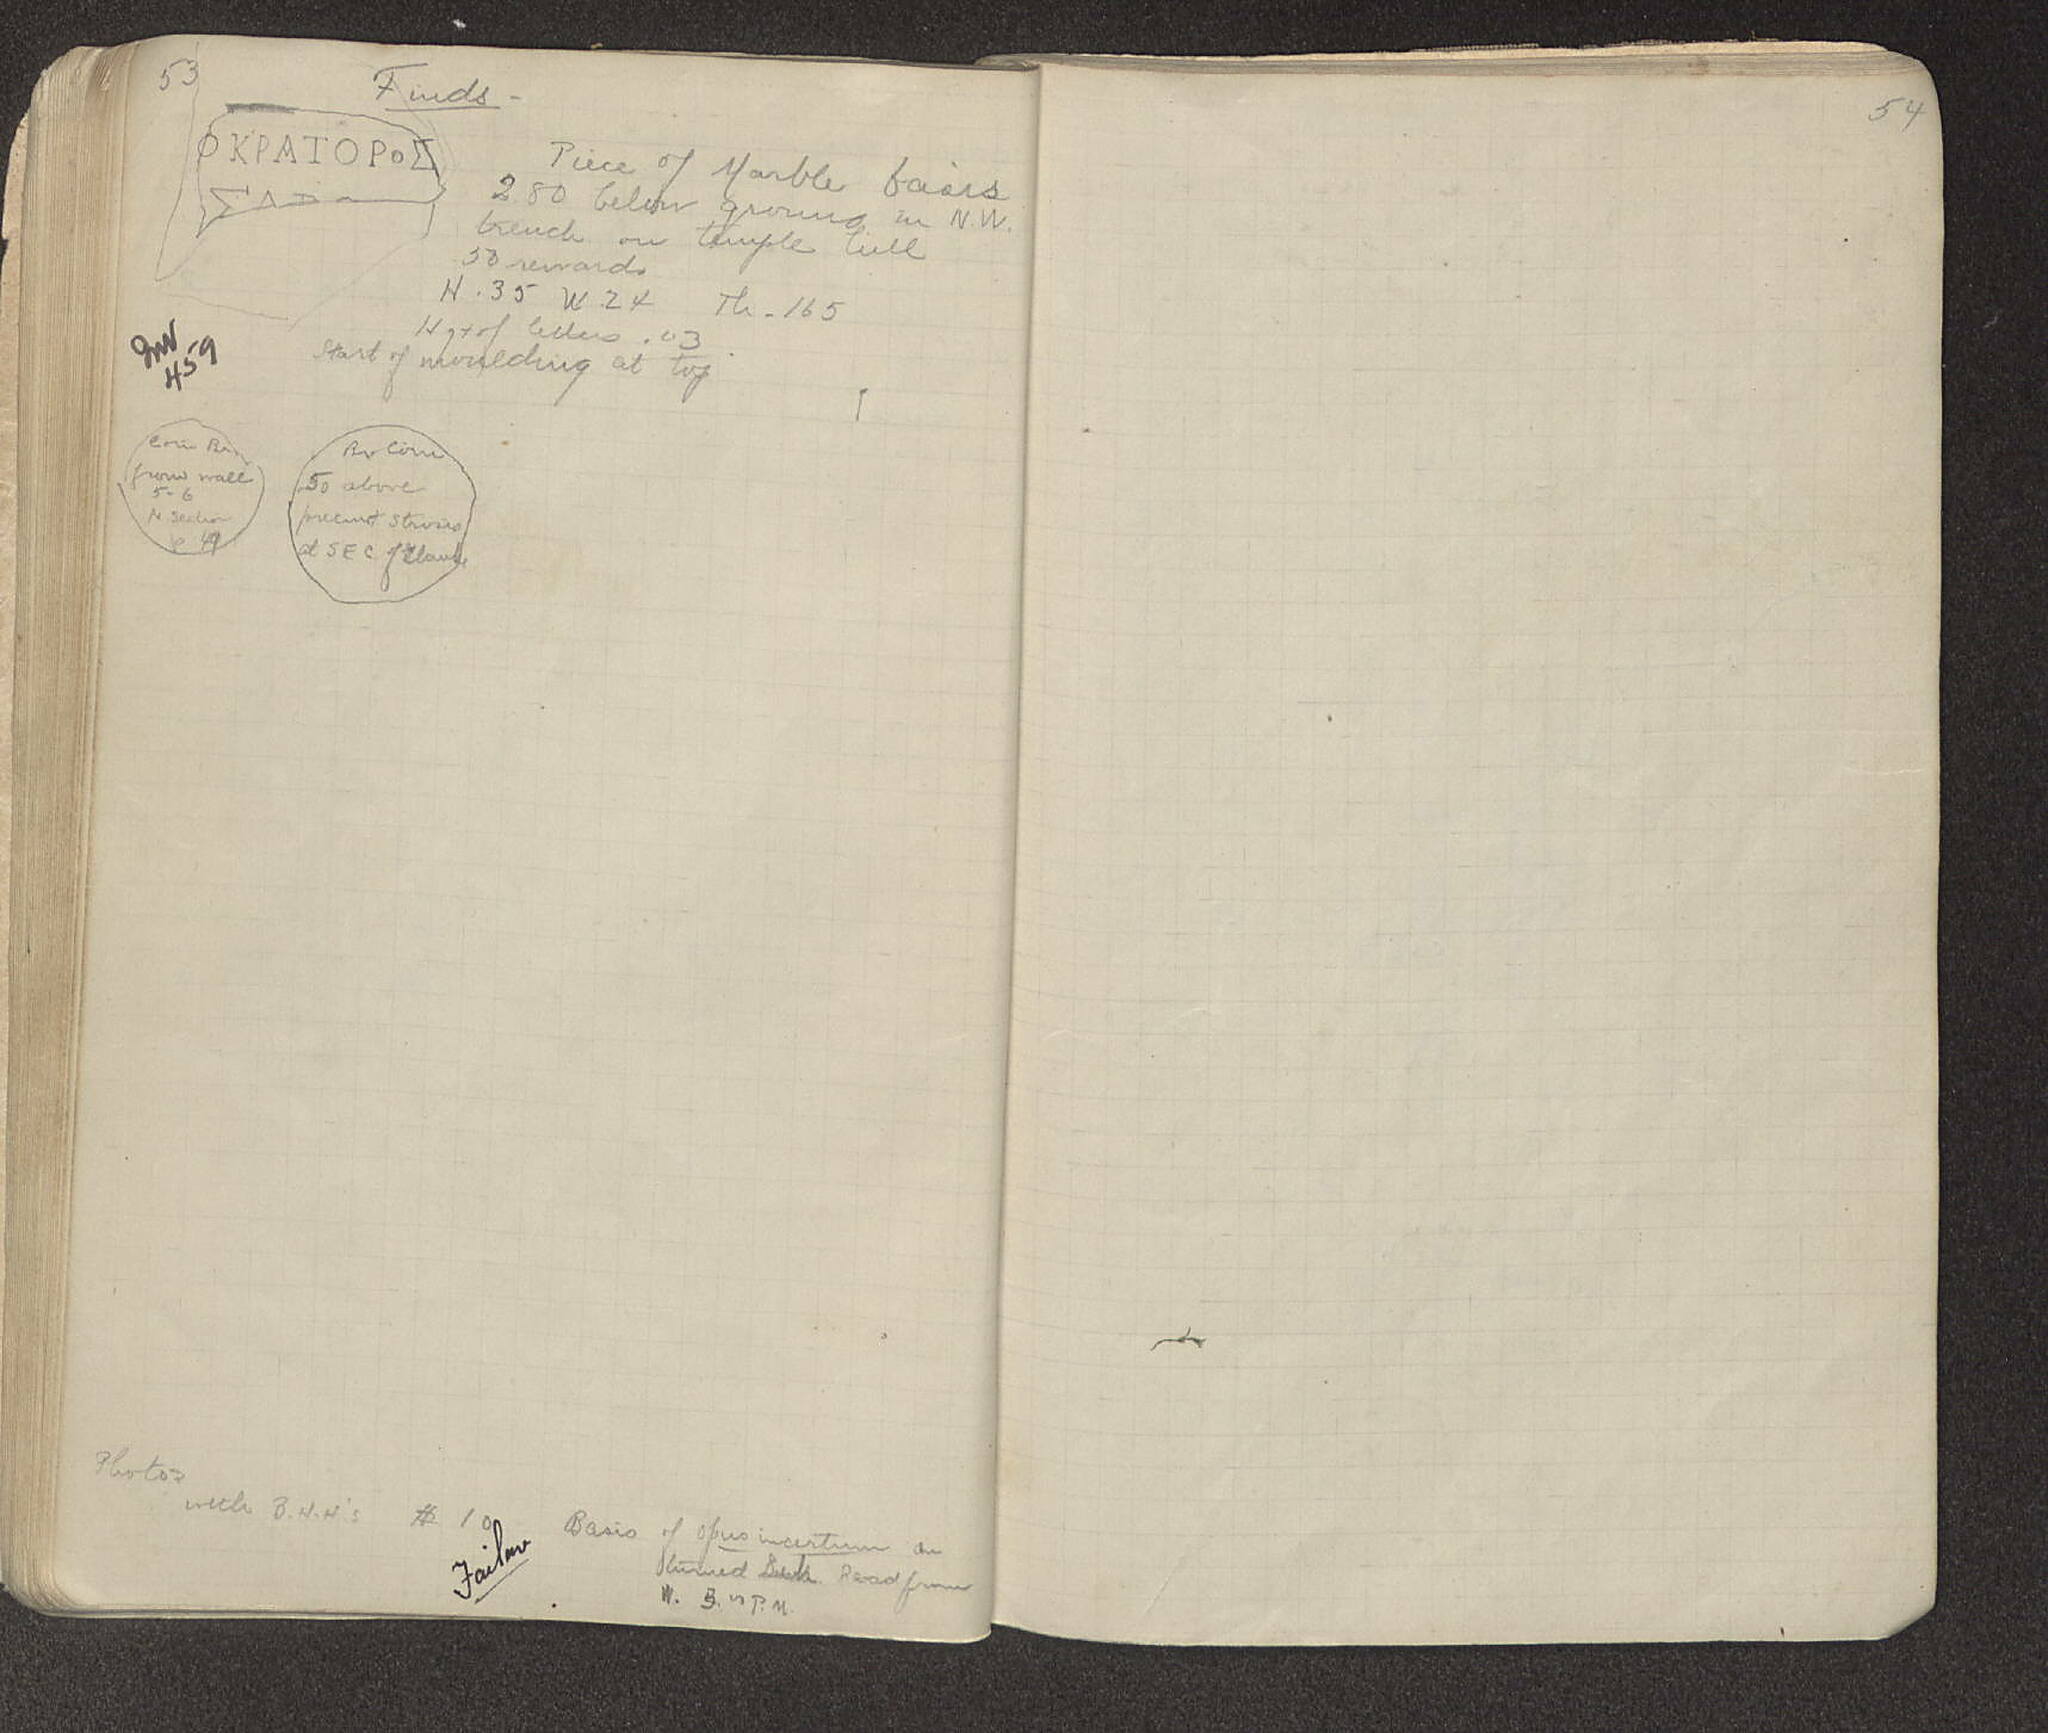 53
Finds -
ΟΚΡΑΤΟΡΟΣ
Piece of Marble basis
280 below ground in N.W.
trench on temple hill
50 reward
H .35 W .24 Th - .165
Hgt of letters .03
Start of moulding at top
Inv
459
Coin Br.
from wall
5-6
N Section
p 49
Br Coin
.50 above
precinct
at SEC of
Photos
with B.H.H's # 10 Basis of opus incertum on
Failure
Road from
W. 3. P.M.
54